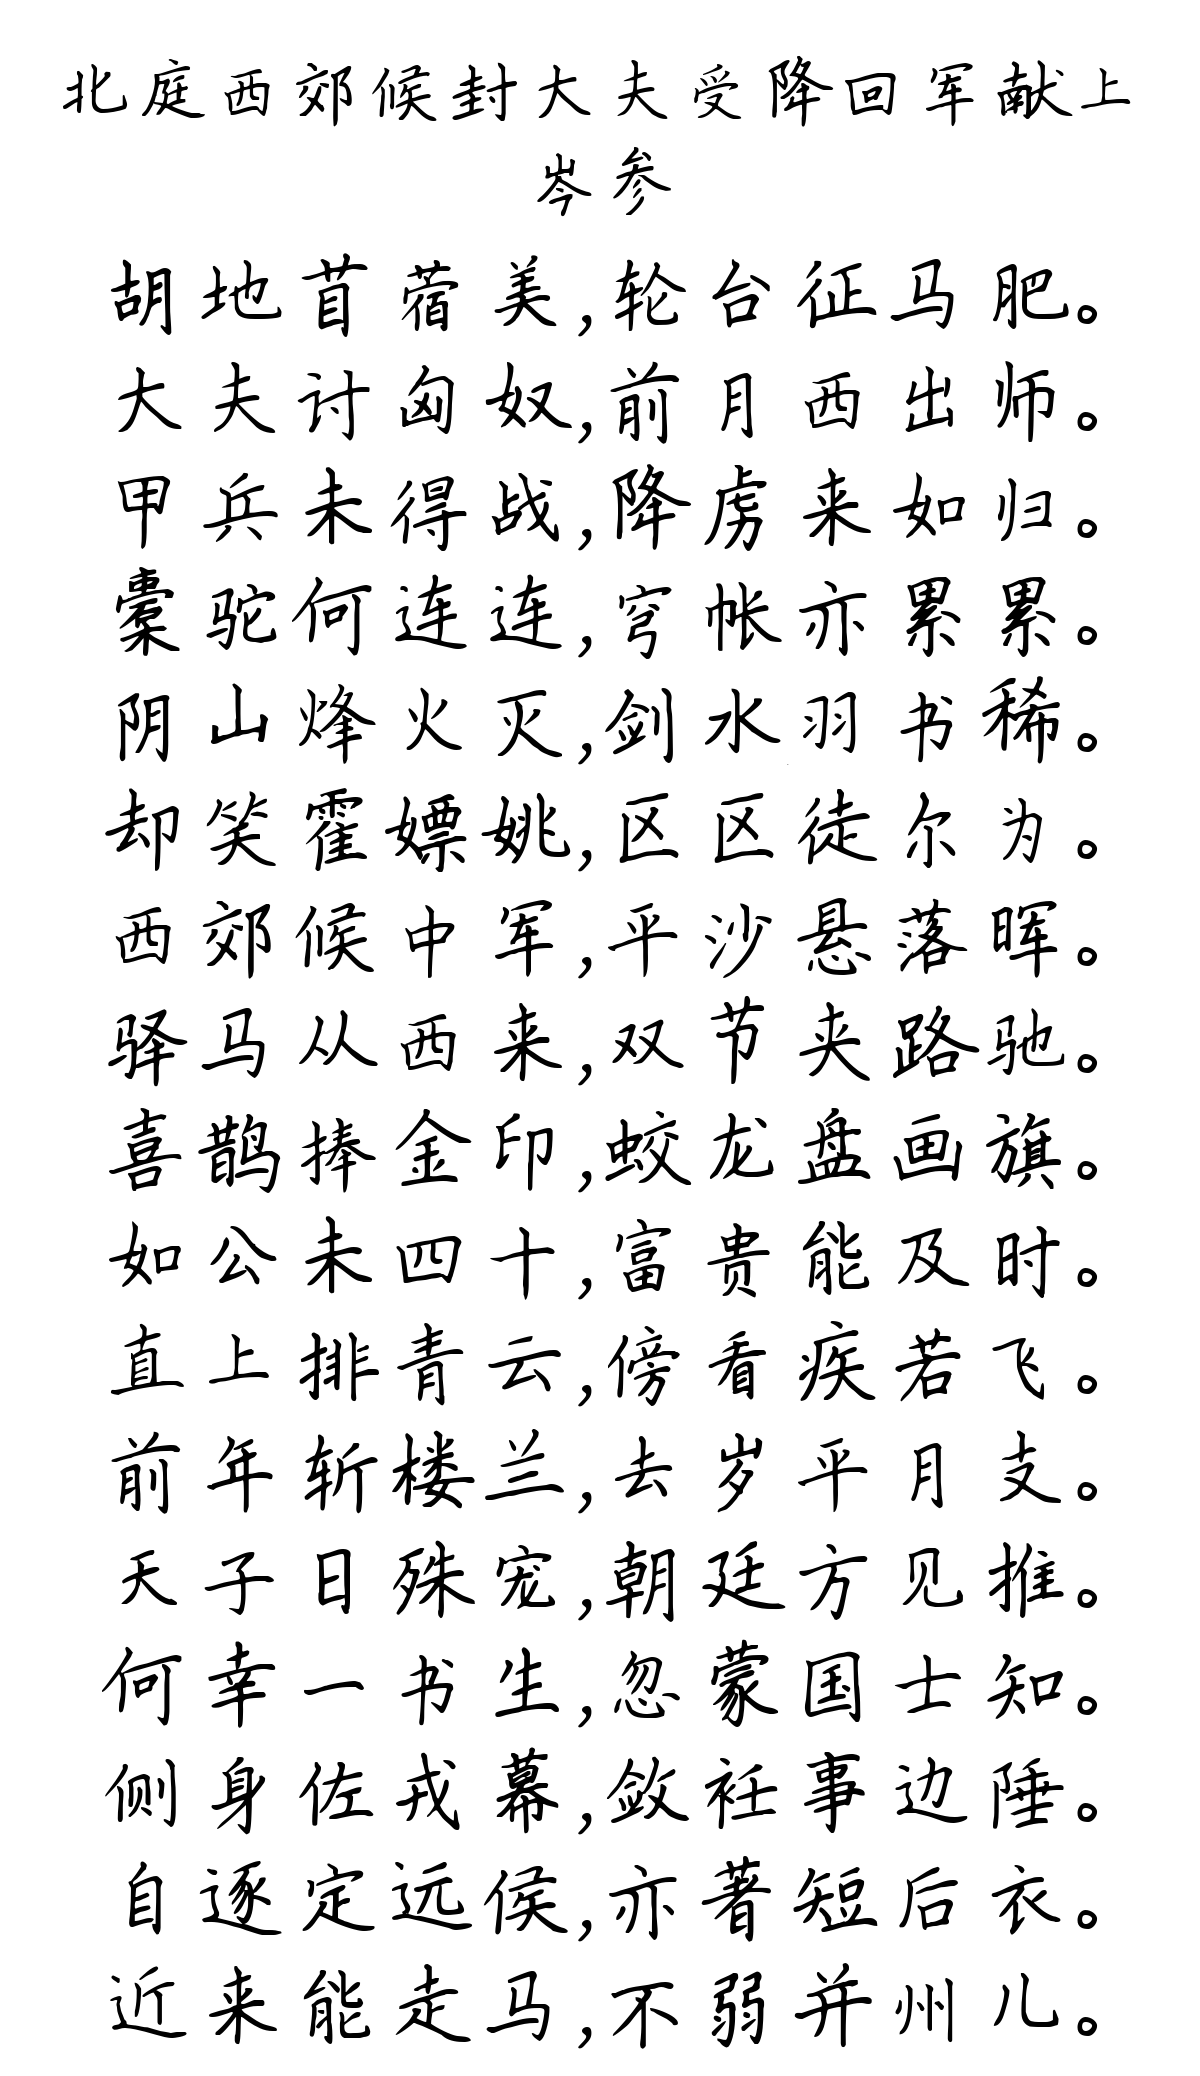 北庭西郊候封大夫受降回军献上
岑参
胡地苜蓿美,轮台征马肥。
大夫讨匈奴,前月西出师。
甲兵未得战,降虏来如归。
橐驼何连连,穹帐亦累累。
阴山烽火灭,剑水羽书稀。
却笑霍嫖姚,区区徒尔为。
西郊候中军,平沙悬落晖。
驿马从西来,双节夹路驰。
喜鹊捧金印,蛟龙盘画旗。
如公未四十,富贵能及时。
直上排青云,傍看疾若飞。
前年斩楼兰,去岁平月支。
天子日殊宠,朝廷方见推。
何幸一书生,忽蒙国士知。
侧身佐戎幕,敛衽事边陲。
自逐定远侯,亦著短后衣。
近来能走马,不弱并州儿。